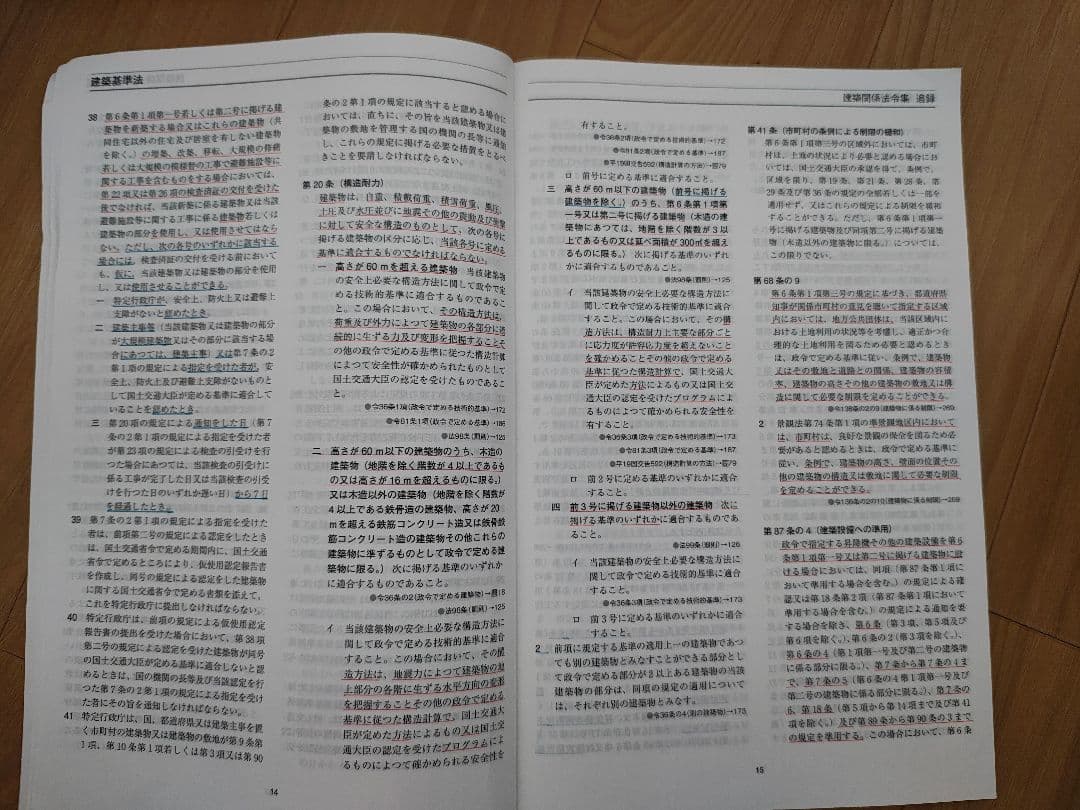 建築基準法
38 第6条第1項第一号若しくは第二号に掲げる建
築物を新築する場合又はこれらの建築物（共
同住宅以外の住宅及び居室を有しない建築物
を除く。）の増築、改築、移転、大規模の修繕
若しくは大規模の模様替の工事で避難施設等に
関する工事を含むものをする場合においては、
第22項又は第26項の検査済証の交付を受けた
後でなければ、当該新築に係る建築物又は当該
避難施設等に関する工事に係る建築物若しくは
建築物の部分を使用し、又は使用させてはなら
ない。ただし、次の各号のいずれかに該当する
場合には、検査済証の交付を受ける前において
も、仮に、当該建築物又は建築物の部分を使用
し、又は使用させることができる。
一 特定行政庁が、安全上、防火上又は避難上
支障がないと認めたとき。
二 建築主事等（当該建築物又は建築物の部分
が大規模建築物又はその部分に該当する場
合にあつては、建築主事）又は第7条の2
第1項の規定による指定を受けた者が、安
全上、防火上及び避難上支障がないものと
して国土交通大臣が定める基準に適合して
いることを認めたとき。
三 第20項の規定による通知をした日（第7
条の2第1項の規定による指定を受けた者
が第23項の規定による検査の引受けを行
つた場合にあつては、当該検査の引受けに
係る工事が完了した日又は当該検査の引受
けを行つた日のいずれか遅い日）から7日
を経過したとき。
39 第7条の2第1項の規定による指定を受けた
者は、前項第二号の規定による認定をしたときは
、国土交通省令で定める期間内に、国土交通
省令で定めるところにより、仮使用認定報告書
を作成し、同号の規定による認定をした建築物
に関する国土交通省令で定める書類を添えて、
これを特定行政庁に提出しなければならない。
40 特定行政庁は、前項の規定による仮使用認定
報告書の提出を受けた場合において、第38項
第二号の規定による認定を受けた建築物が同号
の国土交通大臣が定める基準に適合しないと認
めるときは、国の機関の長等及び当該認定を行
つた第7条の2第1項の規定による指定を受け
た者にその旨を通知しなければならない。
41 特定行政庁は、国、都道府県又は建築主事を置
く市町村の建築物又は建築物の敷地が第9条第
1項、第10条第1項若しくは第3項又は第90
条の2第1項の規定に該当すると認める場合に
おいては、直ちに、その旨を当該建築物又は建
築物の敷地を管理する国の機関の長等に通知
し、これらの規定に掲げる必要な措置をとるべ
きことを要請しなければならない。
第20条（構造耐力）
建築物は、自重、積載荷重、積雪荷重、風圧、
土圧及び水圧並びに地震その他の震動及び衝撃
に対して安全な構造のものとして、次の各号に
掲げる建築物の区分に応じ、当該各号に定める
基準に適合するものでなければならない。
一 高さが60mを超える建築物 当該建築物
の安全上必要な構造方法に関して政令で定
める技術的基準に適合するものであるこ
と。この場合において、その構造方法は、
荷重及び外力によつて建築物の各部分に連
続的に生ずる力及び変形を把握することそ
の他の政令で定める基準に従つた構造計算
によつて安全性が確かめられたものとして
国土交通大臣の認定を受けたものであるこ
と。
●令36条1項（政令で定める技術的基準）→172
●令81条1項（政令で定める基準）→186
●法98条（罰則）→125
二 高さが60m以下の建築物のうち、木造の
建築物（地階を除く階数が4以上であるも
の又は高さが16mを超えるものに限る。）
又は木造以外の建築物（地階を除く階数が
4以上である鉄骨造の建築物、高さが20
mを超える鉄筋コンクリート造又は鉄骨鉄
筋コンクリート造の建築物その他これらの
建築物に準ずるものとして政令で定める建
築物に限る。） 次に掲げる基準のいずれか
に適合するものであること。
●令36条の2（政令で定める建築物）→圖18
●法98条（罰則）→125
イ 当該建築物の安全上必要な構造方法に
関して政令で定める技術的基準に適合す
ること。この場合において、その構
造方法は、地震力によつて建築物の地
上部分の各階に生ずる水平方向の変形
を把握することその他の政令で定める
基準に従つた構造計算で、国土交通大
臣が定めた方法によるもの又は国土交
通大臣の認定を受けたプログラムによ
るものによつて確かめられる安全性を
14
建築関係法令集 追録
有すること。
●令36条2項（政令で定める技術的基準）→172
●令81条2項（政令で定める基準）→187
●平19国交告592（構造計算の方法）→圖79
ロ 前号に定める基準に適合すること。
三 高さが60m以下の建築物（前号に掲げる
建築物を除く。）のうち、第6条第1項第
一号又は第二号に掲げる建築物（木造の建
築物にあつては、地階を除く階数が3以
上であるもの又は延べ面積が300㎡を超え
るものに限る。） 次に掲げる基準のいずれ
かに適合するものであること。
●法98条（罰則）→125
イ 当該建築物の安全上必要な構造方法に
関して政令で定める技術的基準に適合
すること。この場合において、その構
造方法は、構造耐力上主要な部分ごと
に応力度が許容応力度を超えないこと
を確かめることその他の政令で定める
基準に従つた構造計算で、国土交通大
臣が定めた方法によるもの又は国土交
通大臣の認定を受けたプログラムによ
るものによつて確かめられる安全性を
有すること。
●令36条3項（政令で定める技術的基準）→173
●令81条3項（政令で定める基準）→187
●平19国交告592（構造計算の方法）→圖79
ロ 前2号に定める基準のいずれかに適合
すること。
四 前3号に掲げる建築物以外の建築物 次に
掲げる基準のいずれかに適合するものであ
ること。
●法99条（罰則）→126
イ 当該建築物の安全上必要な構造方法に
関して政令で定める技術的基準に適合
すること。
●令36条3項（政令で定める技術的基準）→173
ロ 前3号に定める基準のいずれかに適合
すること。
2 前項に規定する基準の適用上一の建築物であつ
ても別の建築物とみなすことができる部分とし
て政令で定める部分が2以上ある建築物の当該
建築物の部分は、同項の規定の適用について
は、それぞれ別の建築物とみなす。
●令36条の4（別の建築物）→173
第41条（市町村の条例による制限の緩和）
第6条第1項第三号の区域外においては、市町
村は、土地の状況により必要と認める場合にお
いては、国土交通大臣の承認を得て、条例で、
区域を限り、第19条、第21条、第28条、第
29条及び第36条の規定の全部若しくは一部を
適用せず、又はこれらの規定による制限を緩和
することができる。ただし、第6条第1項第一
号に掲げる建築物及び同項第二号に掲げる建築
物（木造以外の建築物に限る。）については、
この限りでない。
第68条の9
第6条第1項第三号の規定に基づき、都道府県
知事が関係市町村の意見を聴いて指定する区域
内においては、地方公共団体は、当該区域内に
おける土地利用の状況等を考慮し、適正かつ合
理的な土地利用を図るため必要と認めるとき
は、政令で定める基準に従い、条例で、建築物
又はその敷地と道路との関係、建築物の容積
率、建築物の高さその他の建築物の敷地又は構
造に関して必要な制限を定めることができる。
●令136条の2の9（建築物に係る制限）→269
2 景観法第74条第1項の準景観地区内において
は、市町村は、良好な景観の保全を図るため必
要があると認めるときは、政令で定める基準に
従い、条例で、建築物の高さ、壁面の位置その
他の建築物の構造又は敷地に関して必要な制限
を定めることができる。
●令136条の2の10（建築物に係る制限）→269
第87条の4（建築設備への準用）
政令で指定する昇降機その他の建築設備を第6
条第1項第一号又は第二号に掲げる建築物に設
ける場合においては、同項（第87条第1項に
おいて準用する場合を含む。）の規定による確
認又は第18条第2項（第87条第1項において
準用する場合を含む。）の規定による通知を要
する場合を除き、第6条（第3項、第5項及び
第6項を除く。）、第6条の2（第3項を除く。）、
第6条の4（第1項第一号及び第二号の建築物
に係る部分に限る。）、第7条から第7条の4ま
で、第7条の5（第6条の4第1項第一号及び
第二号の建築物に係る部分に限る。）、第7条の
6、第18条（第5項から第14項まで及び第41
項を除く。）及び第89条から第90条の3まで
の規定を準用する。この場合において、第6条
15